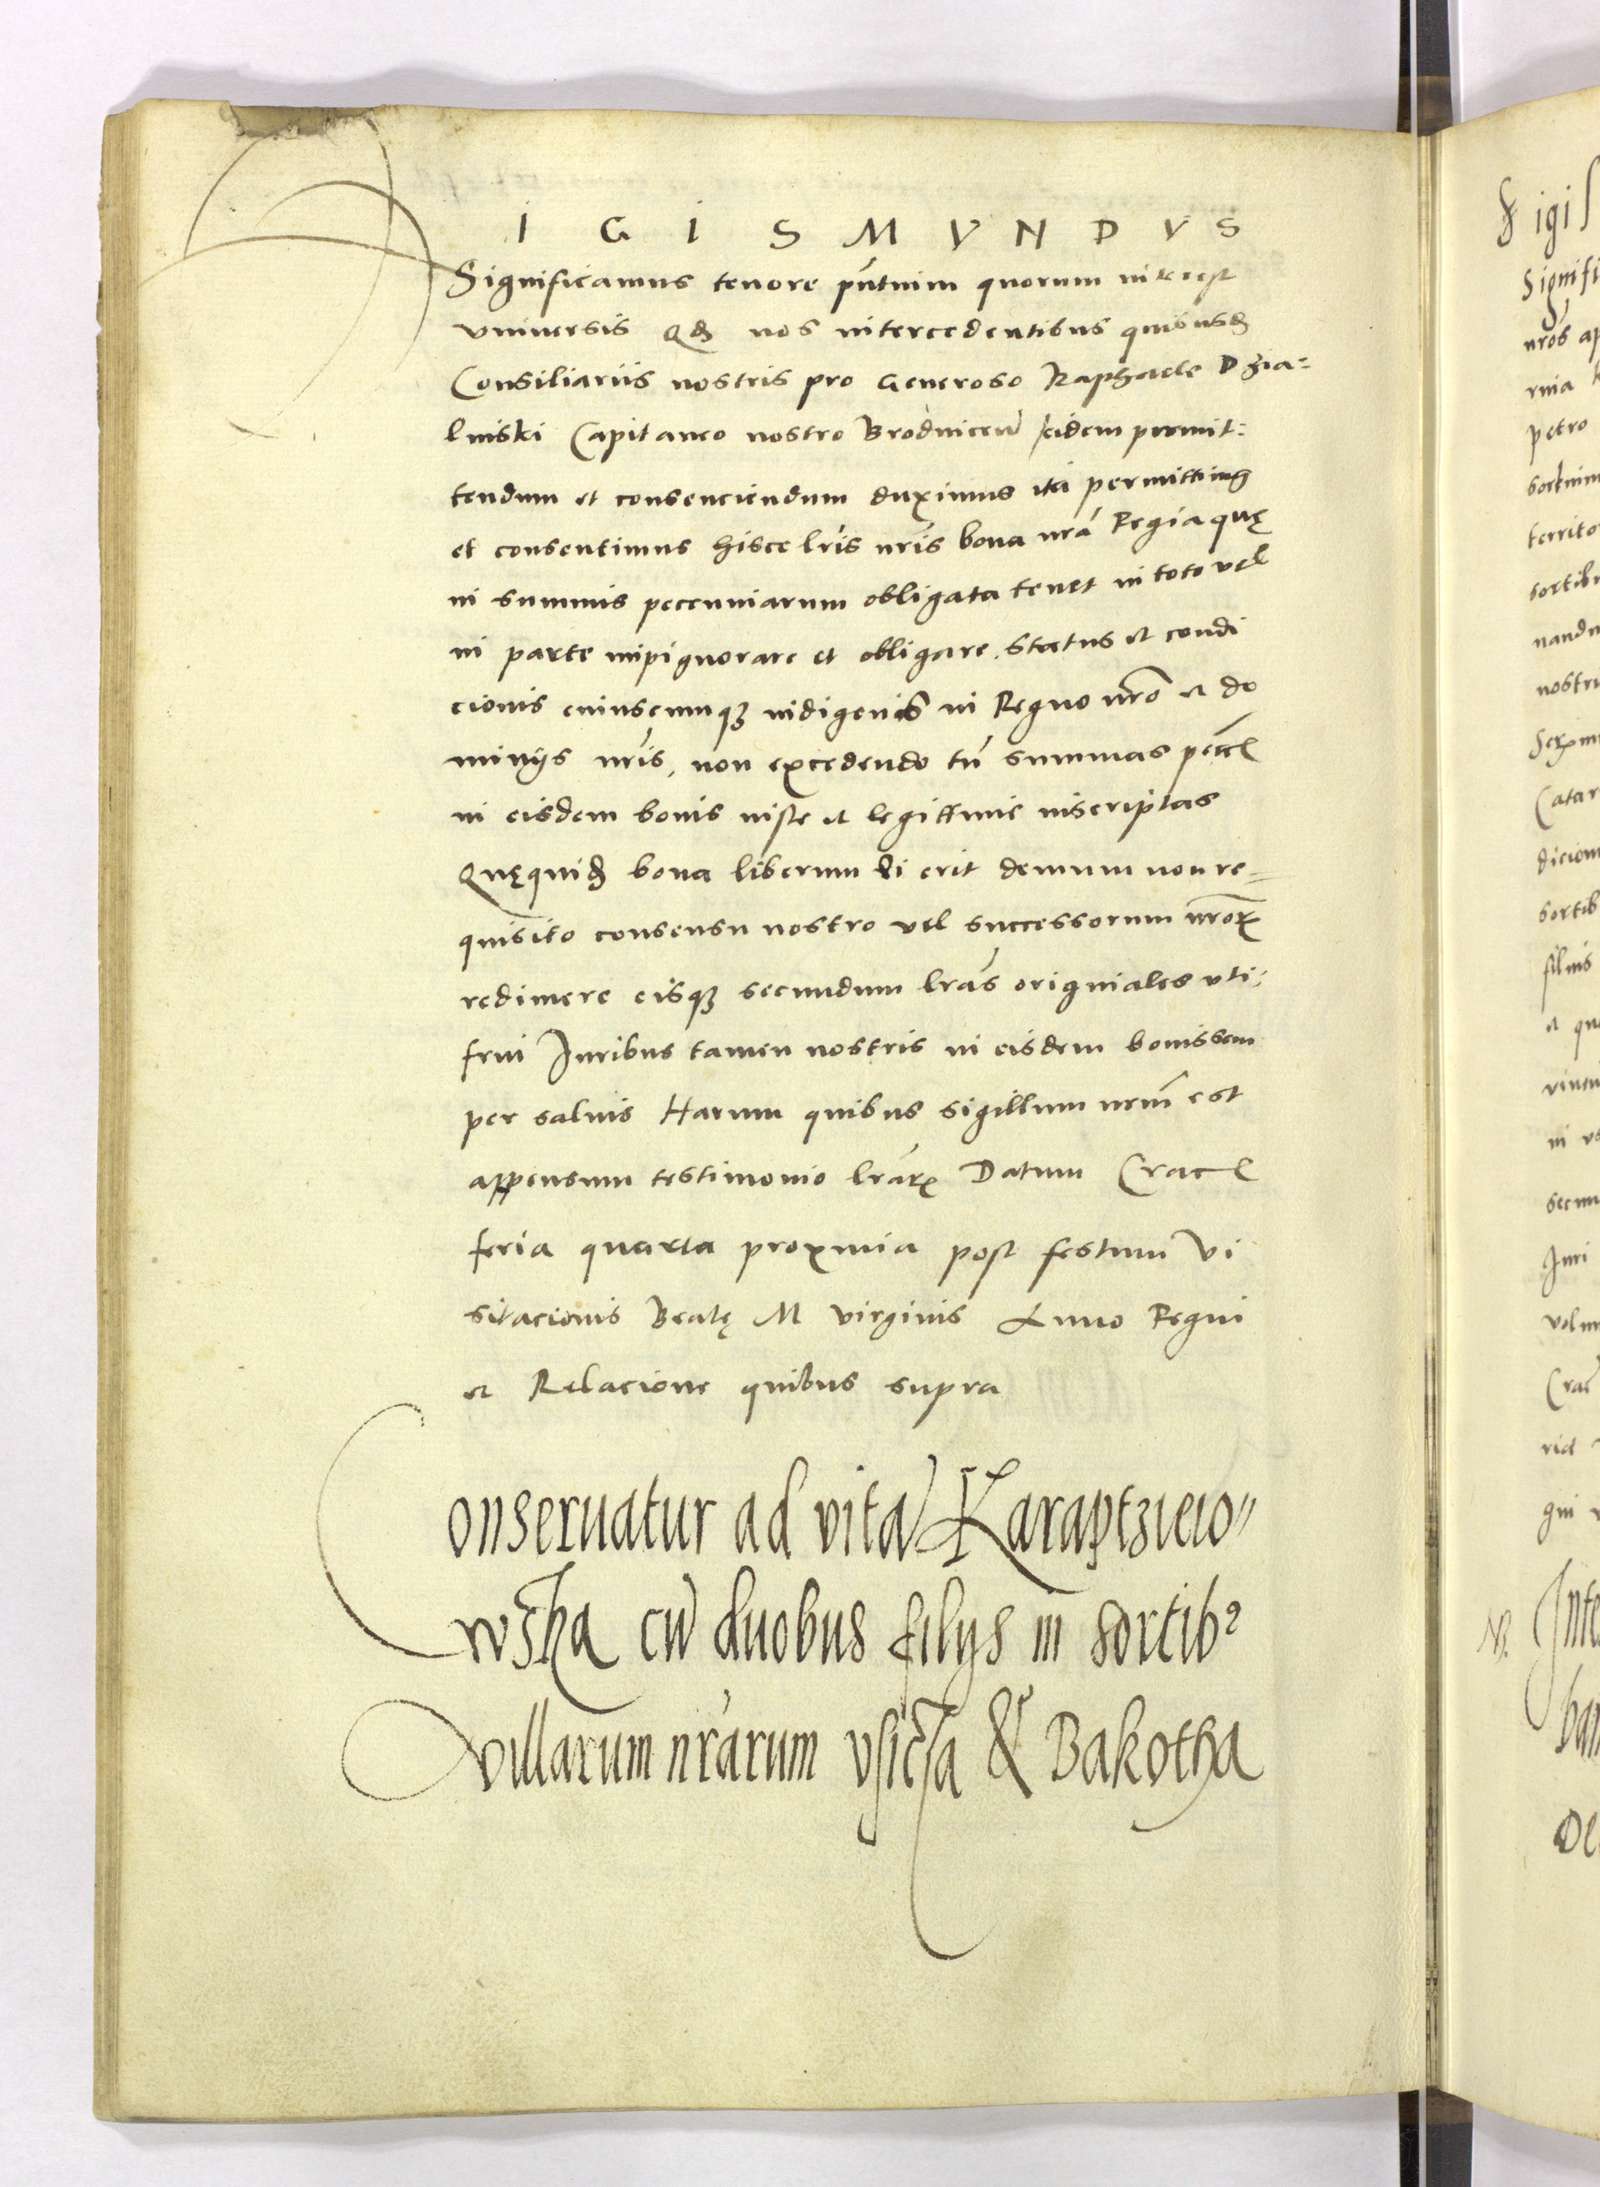 IGISMVNDVS
Significamus tenore pñtium quorum interest
vniversis Qđ nos intercedentibus quibusđ
Consiliariis nostris pro Generoso Raphaele Dzia-
linski Capitaneo nostro Brodnicen̄ eidem permit-
tendum et consenciendum duximus ita permittimg
et consentimus hisce lr̃is nr̃is bona nr̃a Regia quę
in summis pecuniarum obligata tenet in toto vel
in parte inpignorare et obligare status et condi
cionis cuiuscunqꝫ indigenis in Regno nr̃o et do
minijs nr̃is, non excedendo tn̄ summas
in eisdem bonis iuste et legittime inscriptas
Quęquiđ bona liberum ei erit demum non re-
quisito consensu nostro vel successorum nr̃oꝝ
redimere eisqꝫ secundum lr̃as originales vti-
frui Juribus tamen nostris in eisdem bonis sem
per saluis Harum quibus sigillum nr̃m est
appensum testimonio lr̃aꝝ Datum Crac
feria quarta proxima post festum Vi
sitacionis Beatę M virginis Anno Regni
et Relacione quibus supra
Conseruatur ad vitā Karaptzieio"
wska cū duobus filijs in sortibꝰ
villarum nr̃arum & Bakotha
Sigis
Signifi
nr̃os ap
rnia
petro
sortium
territo
sortibu
nandu
nostru
(atar
dicion
sortib
filiis
et qu
secun
Juri
volum
Crac
gni
NB.
Inte
De